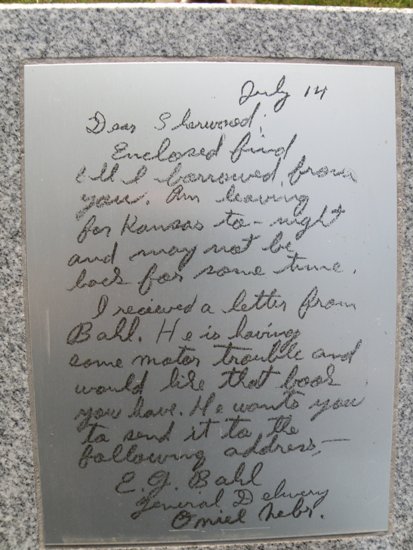 July 14
Dear Sherwood:
Enclosed find
all I borrowed from
you. Am leaving
for Kansas to-night
and may not be
back for some time.
I recieved a letter from
Bahl. He is having
some motor trouble and
would like that book
you have. He wants you
to send it to the
following address,—
E. G. Bahl
General Delivery
Oniel Nebr.